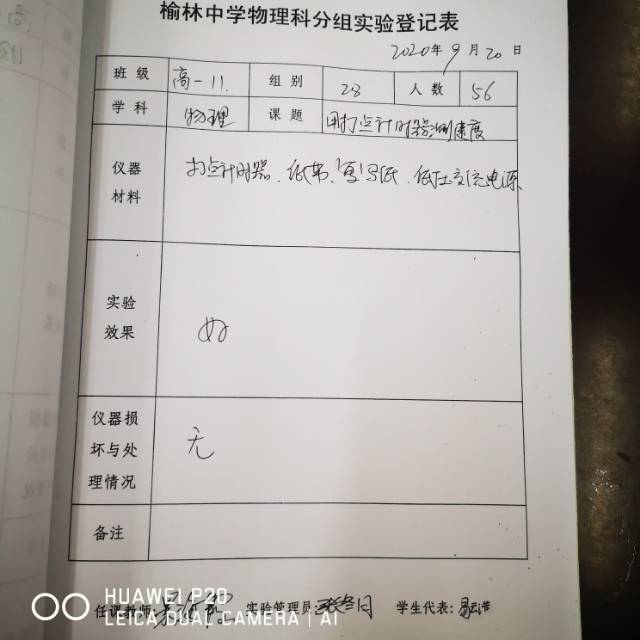 榆林中学物理科分组实验登记表
2020年9月20日
班级 高一11. 组别 28 人数 56
学科 物理 课题 用打点计时器测速度
仪器材料 打点计时器、纸带、复写纸、低压交流电源
实验效果 好
仪器损坏与处理情况 无
备注
任课教师: 实验管理员: 学生代表:
HUAWEI P20
LEICA DUAL CAMERA | AI